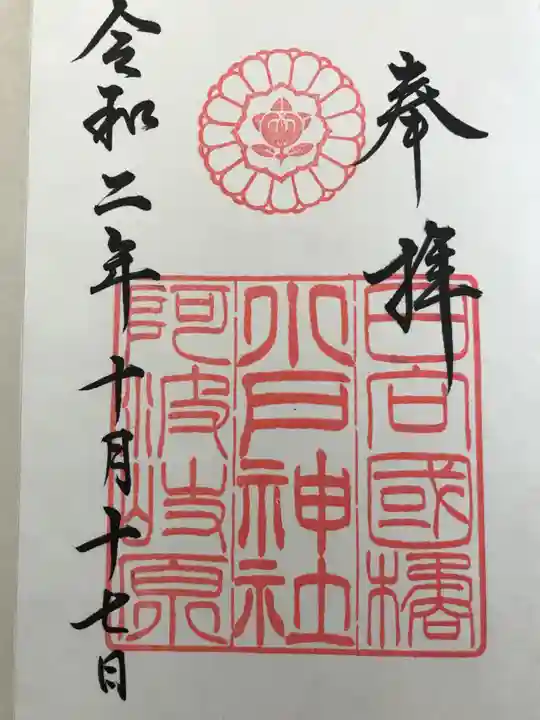 奉拝
日向國橘
小戸神社
阿波岐原
令和二年十月十七日